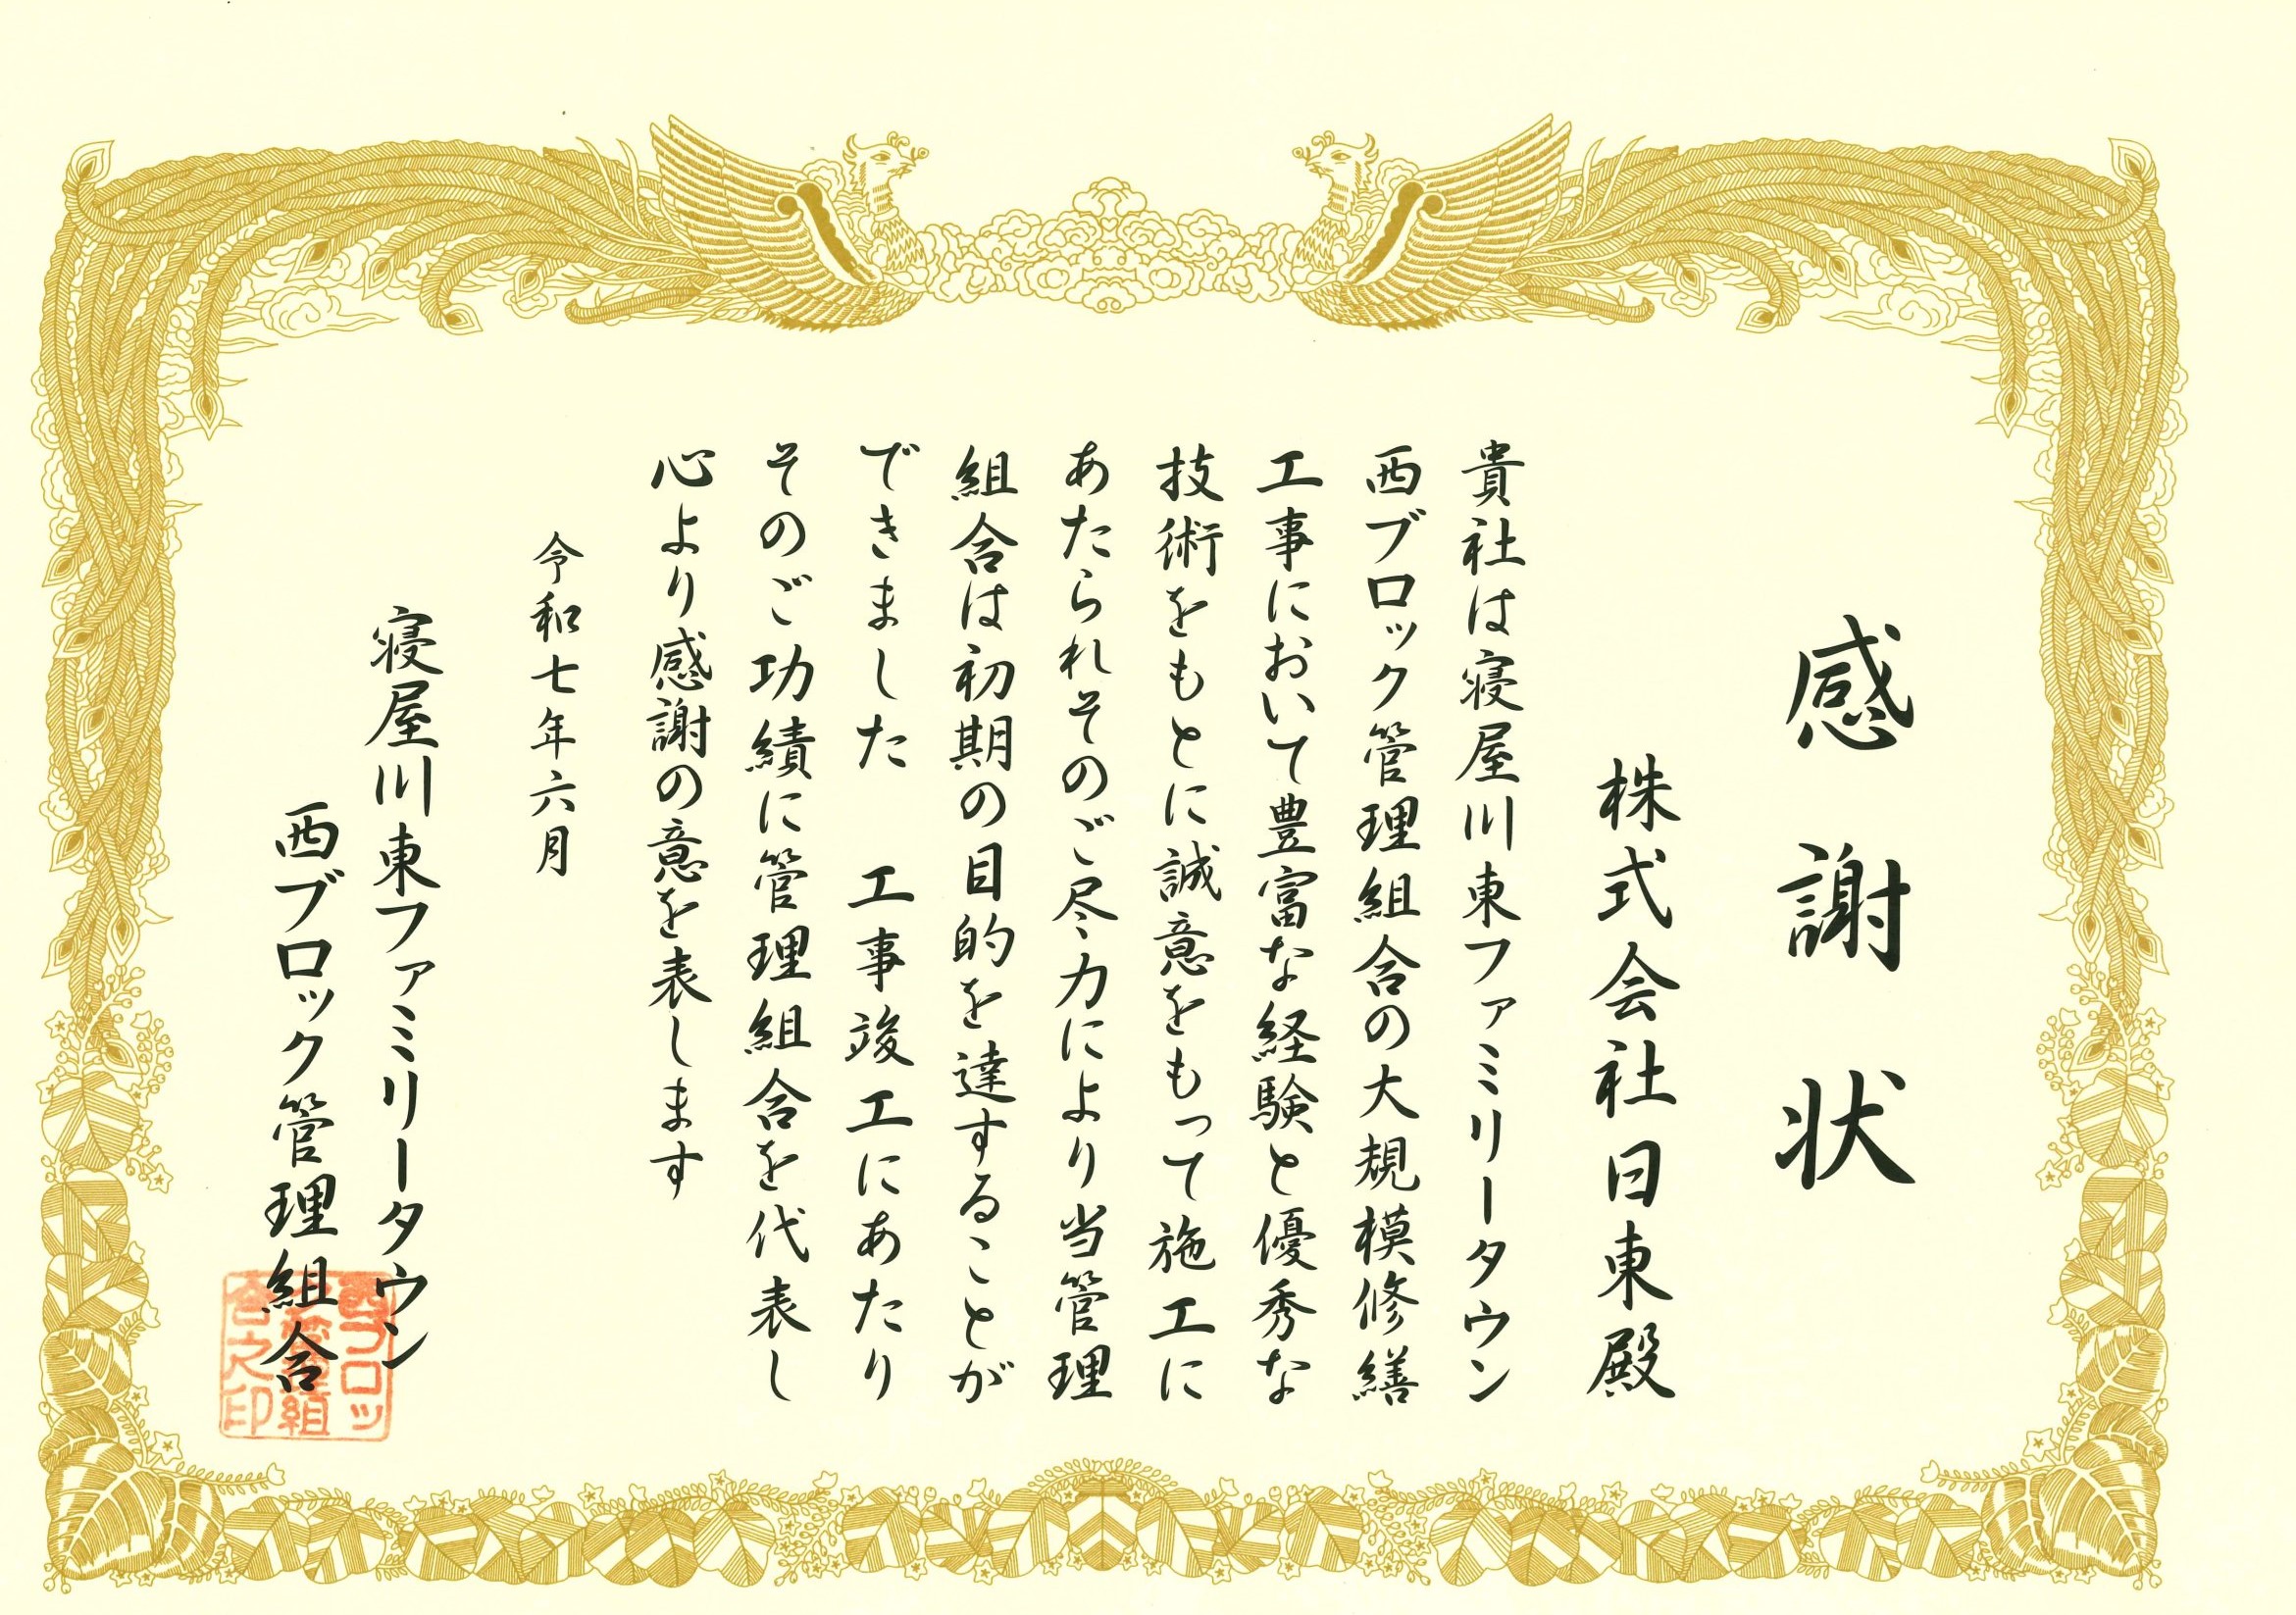 感謝状
株式会社日東殿
貴社は寝屋川東ファミリータウン
西ブロック管理組合の大規模修繕
工事において豊富な経験と優秀な
技術をもとに誠意をもって施工に
あたられそのご尽力により当管理
組合は初期の目的を達することが
できました　工事竣工にあたり
そのご功績に管理組合を代表し
心より感謝の意を表します
令和七年六月
寝屋川東ファミリータウン
西ブロック管理組合
西ブロッ
ク管理組
合之印